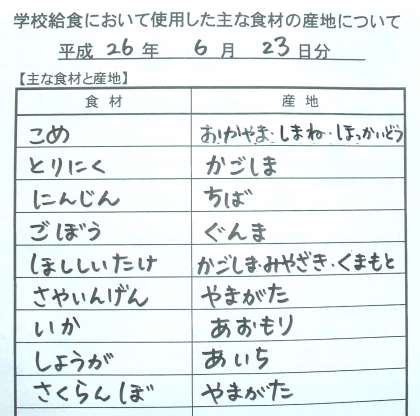 学校給食において使用した主な食材の産地について
平成 26 年 6 月 23 日分
【主な食材と産地】
食材 産地
こめ おかやま・しまね・ほっかいどう
とりにく かごしま
にんじん ちば
ごぼう ぐんま
ほししいたけ かごしま・みやざき・くまもと
さやいんげん やまがた
いか あおもり
しょうが あいち
さくらんぼ やまがた